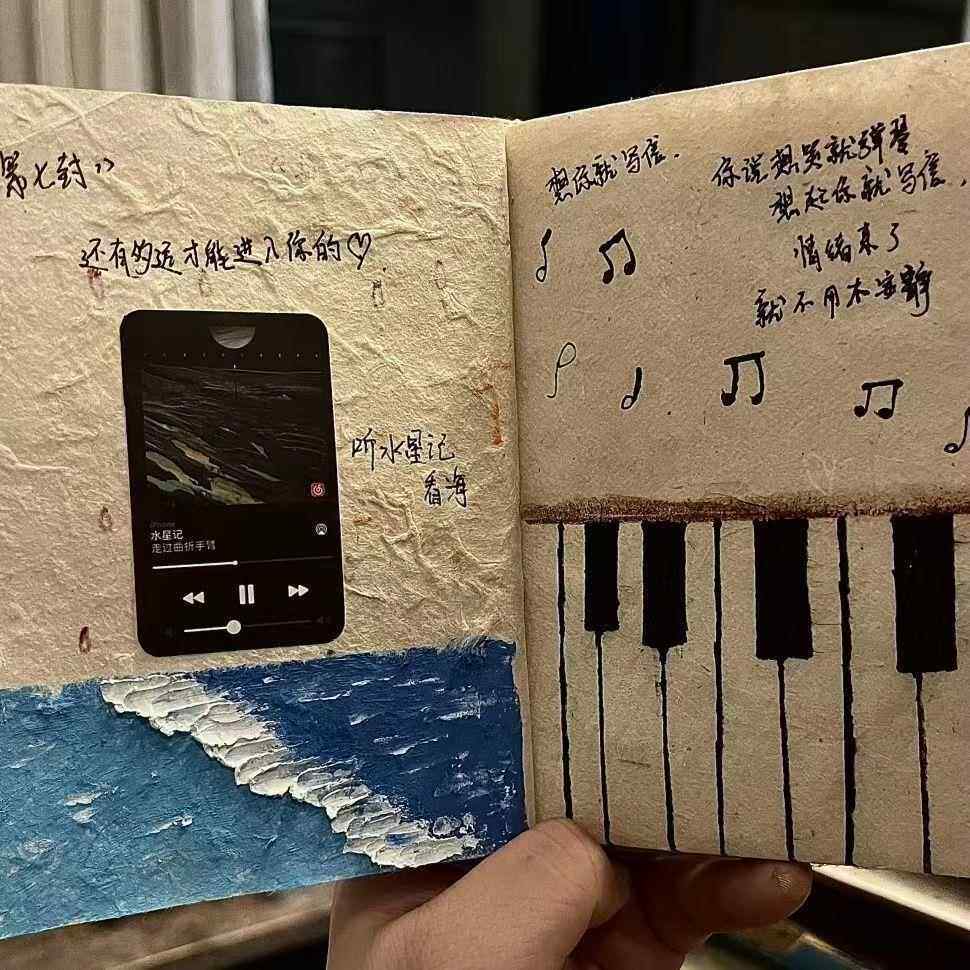 第七封”
还有多远才能进入你的♡
听水星记
看海
iPhone
水星记
走过曲折手臂
想你就写信.
你说想哭就弹琴
想起你就写信.
情绪来了
就不用太安静